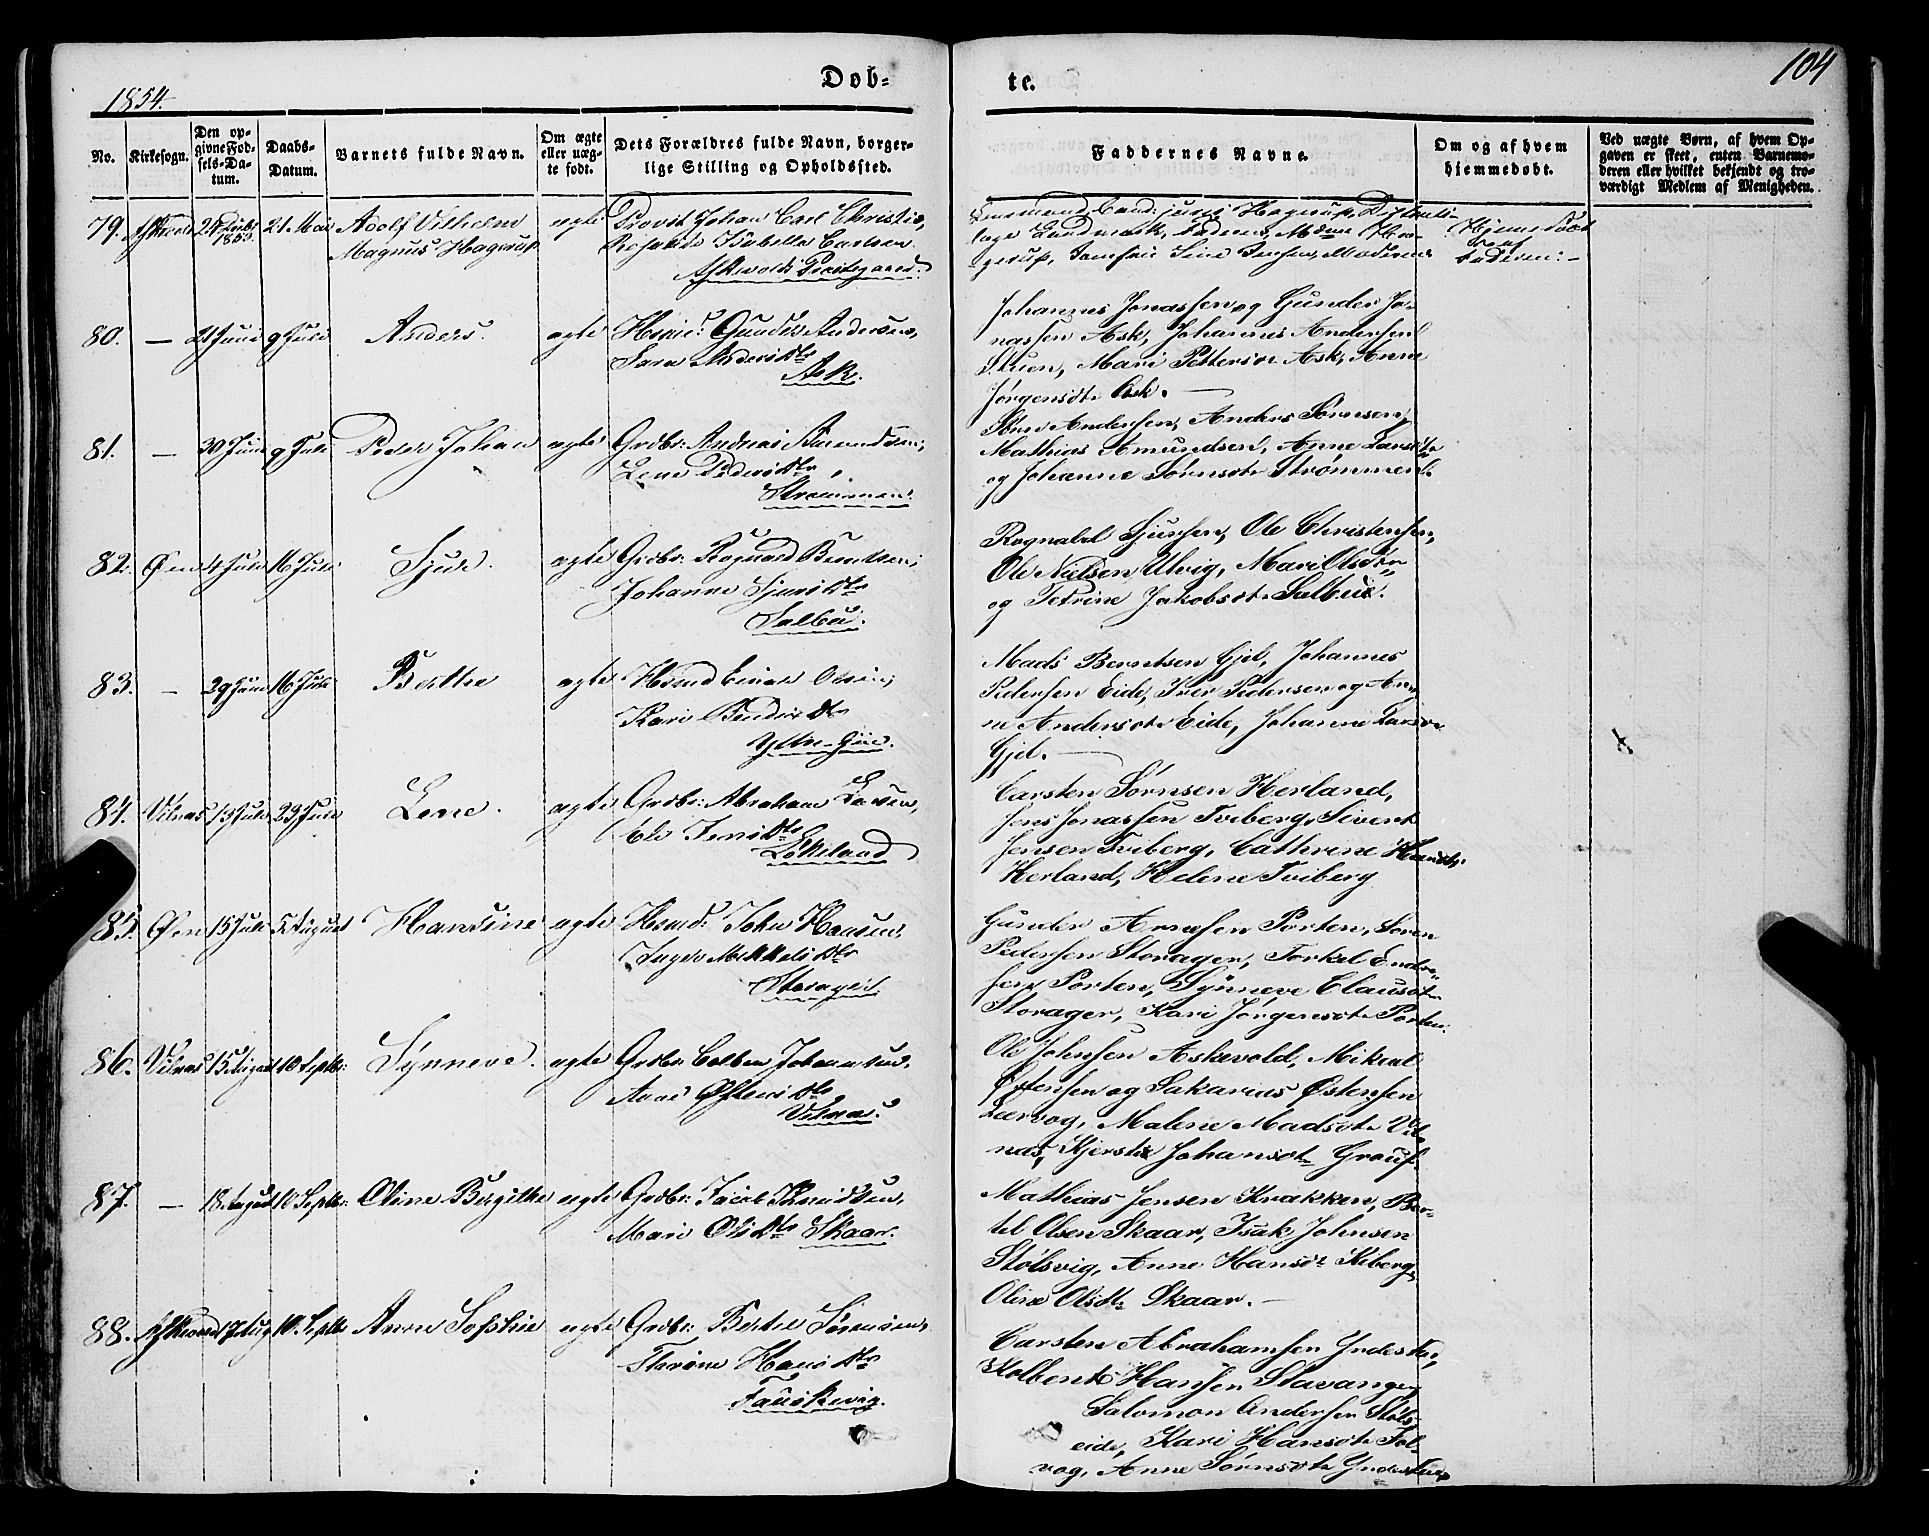 104
1854.
Døb-
te.
No.
Kirkesogn.
Den op-
givne Fød-
sels-Da-
tum.
Daabs-
Datum.
Barnets fulde Navn.
Om ægte
eller uæg-
te født.
Dets Forældres fulde Navn, borger-
lige Stilling og Opholdssted.
Faddernes Navne.
Om og af hvem
hjemmedøbt.
Ved uægte Børn, af hvem Op-
gaven er skeet, enten Barnemo-
deren eller hvilket bekjendt og tro-
værdigt Medlem af Menigheden.
79. 1853. 21 Mai Adolf Vilhelm
Magnus Hagerup
ægte Provst Johan Carl Christie,
Isabella Carsen
Askevolds Præstegaard.
Hagerup,
Landmark, Faderen, Mdme Ha-
gerup, Jomfru Sine Jensen, Moderen
Hjemmedøbt
af
Faderen:-
80. — 21 Juni 9 Juli Anders. ægte Gunder Andersen,
Sara Andersdtr
Ask.
Johannes Jonassen og Gunder Jo-
nassen Ask, Johannes Andersen
Stuen, Mari Pettersdtr Ask, Anne
Jørgensdtr Ask.
81. — 30 Juni 9 Juli Peder Johan ægte Grdbr: Andreas Amundsen,
Lene Pedersdtr,
Strømmen.
Andersen, Anders Sørnsen,
Mathias Amundsen, Anne Larsdtr
og Johanne Sørnsdtr Strømmen.
82. Øen 4 Juli 16 Juli Sjur. ægte Grdbr: Rognald Berntsen,
Johanne Sjursdtr
Salbu.
Rognald Sjursen, Ole Christensen,
Ole Nielsen Ulvig, Mari Olsdtr
og Petrine Jakobsdtr Salbu.
83. — 29 Juni 16 Juli Berthe ægte Hsmd Einar Olsen,
Kari Bendixdtr
Ytre-Gjil.
Mads Berntsen Gjel, Johannes
Pedersen Eide, Iver Pedersen og An-
ne Andersdtr Eide, Johanne Larsdtr
Gjel.
84. Vilnæs 13 Juli 23 Juli Lene. ægte Grdbr: Abraham Larsen,
Eli Jensdtr
Løkeland
Carsten Sørnsen Herland,
Jens Jonassen Tviberg, Sivert
Jensen Tviberg, Cathrine Hansdtr
Herland, Helene Tviberg
85. Øen 15 Juli 5 August Hansine ægte Hsmd: John Hansen,
Inger Mikkelsdtr
Storager.
Gunder Arnesen Porten, Søren
Pedersen Storager, Torkel Endre-
sen Porten, Synneve Clausdtr
Storager, Kari Jørgensdtr Porten.
86. Vilnæs 15 August 10 Septbr: Synneve. ægte Grdbr: Colben Johannesen,
Anne Østensdtr
Vilnæs.
Ole Johnsen Askevold, Mikal
Østensen og Sakarias Østensen
Lervog, Malene Madsdtr Vil-
næs, Kjersti Johansdtr
87. — 18 August 10 Septbr: Oline Birgithe ægte Grdbr: Jacob Knudsen,
Mari Olsdtr Skaar.
Mathias Jensen Krakken, Ber-
tel Olsen Skaar, Isak Johnsen
Stølsvig, Anne Hansdtr Kiberg,
Oline Olsdtr Skaar.
88. Askevold 17 Aug 10 Septbr Anne Sophie ægte Grdbr: Bertel Sørensen,
Hansdtr
Fauskevig.
Carsten Abrahamsen Yndestad,
Kolbent Hansen Stavang,
Salomon Andersen Støls-
eide, Kari Hansdtr Fal-
vog, Anne Sørnsdtr Yndestad